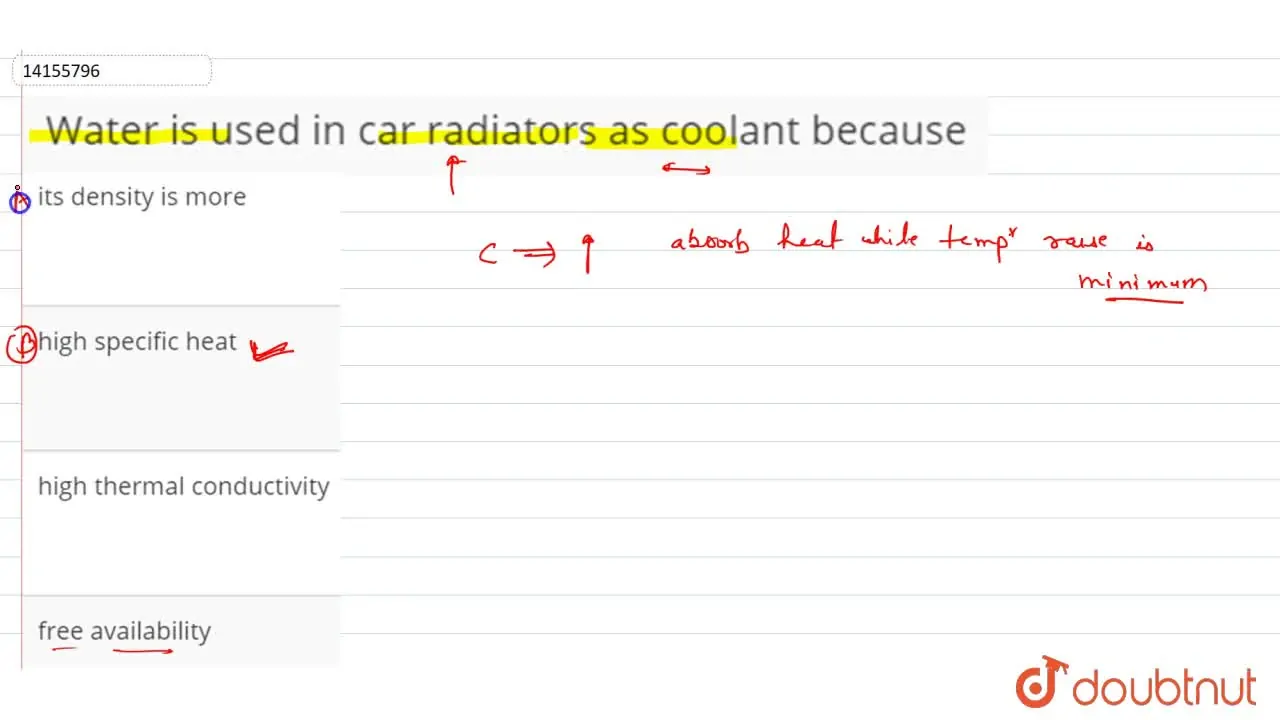 14155796
Water is used in car radiators as coolant because
A its density is more
C ⇒ ↑ absorb heat while temp^r raise is
minimum
B high specific heat ✓
high thermal conductivity
free availability
doubtnut